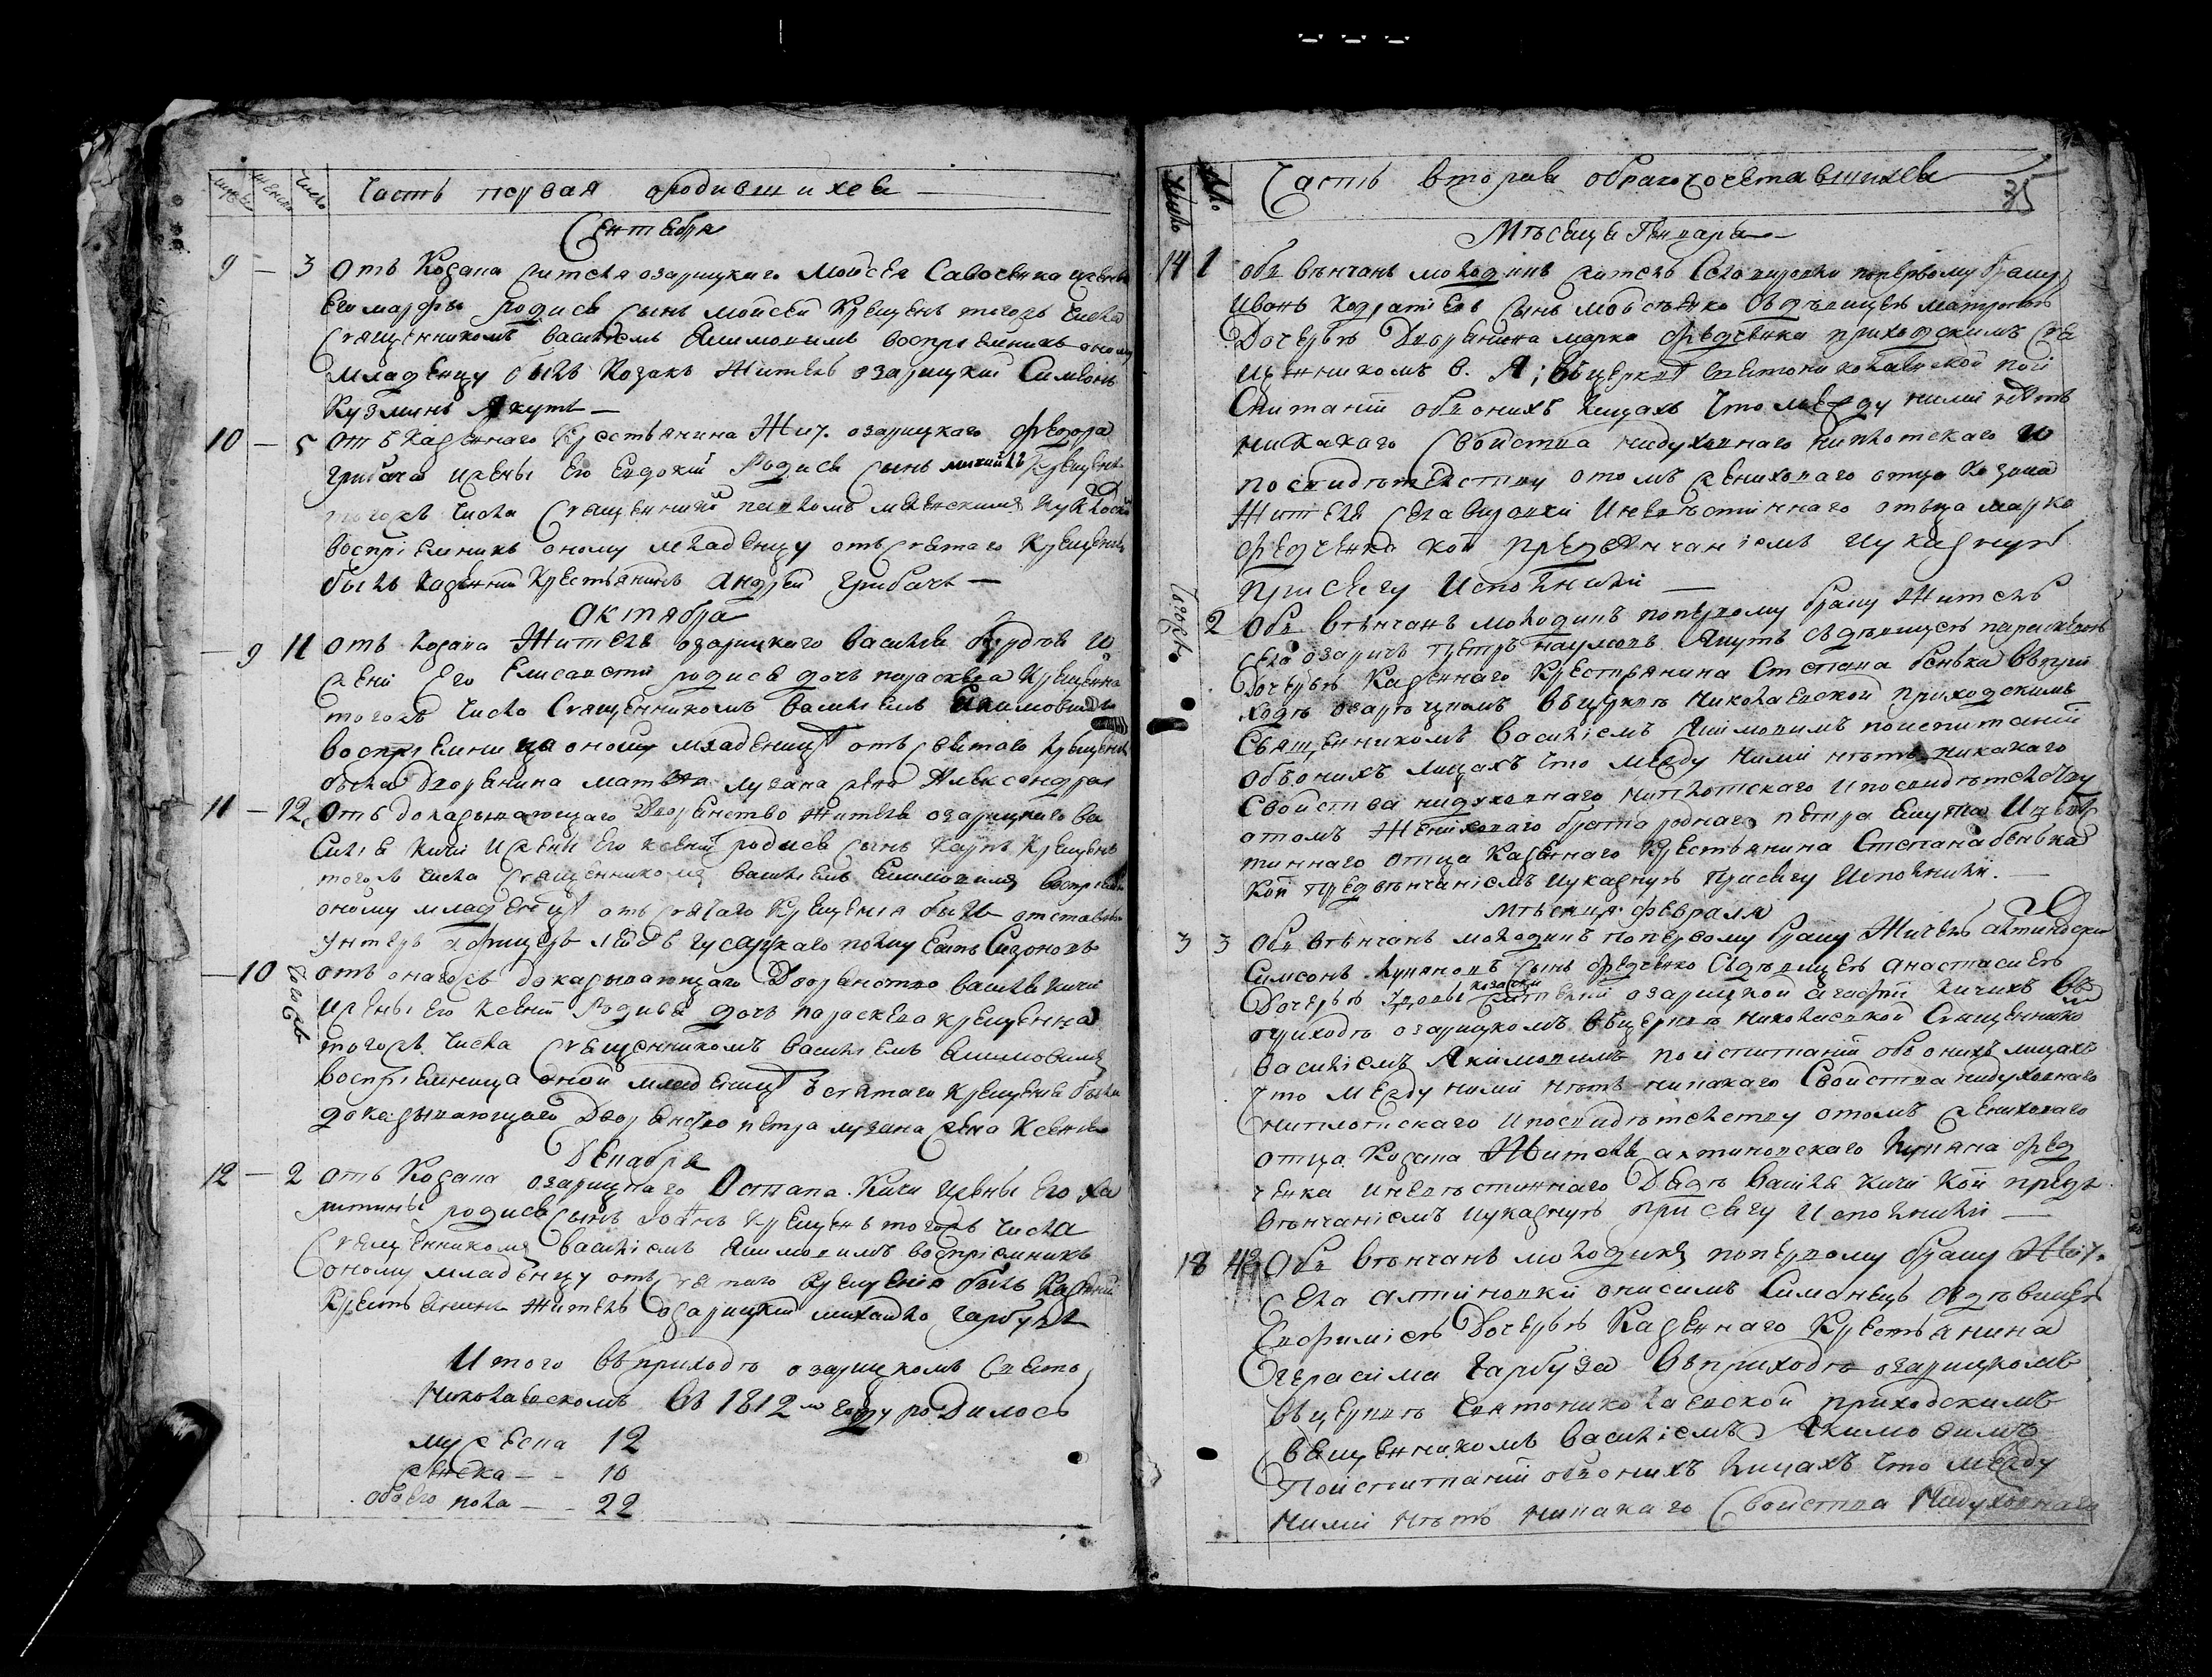 Часть первая ородившихся
Сентебря
9 — 3 Отъ Козака жителя озарицкаго Мойсея Савочѣнка ижены
Его марфы родися сынъ мойсей Крещенъ тогожъ числа
Священникомъ василіемъ Якимовимъ воспріемникъ оному
младенцу былъ Козакъ Житель озарицкій Симѣонъ
Кузминъ Якутъ —
10 — 5 отъ Казеннаго Крестьянина Жит. озарицкаго федора
Грибача ижены Его Евдокіи Родися сынъ михаилъ Крещенъ
тогожъ числа Священнико
воспріемникъ оному младенцу отъ святаго Крещенія
былъ казенний Крестьянинъ андрей Грибачъ —
Октября
— 9 11 отъ козака Жителя озарицкаго василія и
жени Его Елисаветы родися дочь параскева Крещенна
тогожъ числа Священникомъ василіемъ Екимовимъ
воспріемница оному младенцу отъ святаго Крещенія
была Дворянина матвея лузана жена Александра
11 — 12 Отъ доказывающаго Дворянство жителя озарицкаго ва
силія Кичи ижены его ксеніи родися сынъ Карпъ Крещенъ
тогожъ числа священникомъ василіемъ Екимовимъ воспріемникъ
оному младенцу отъ святаго Крещенія былъ отставной
унтеръ офицеръ лейбъ гусарскаго полку
— 10 тогожъ отъ онагожъ доказывающаго Дворянство василія кичи
ижены его Ксеніи Родися дочь параскева крещенна
тогожъ числа священникомъ василіемъ Екимовимъ
воспріемница оной младенцу святаго Крещенія была
доказывающаго Дворянство петра лузана жена Ксенія
Декабря
12 — 2 отъ Козака озарицкаго Остапа Кичи ижены Его ха
ритины родися сынъ Іоанъ Крещенъ тогожъ числа
Священникомъ василіемъ Якимовимъ воспріемникъ
оному младенцу отъ святаго крещенія былъ Казенний
Крестьянинъ житель озарицкій михайло гарбузъ
Итого въприходѣ озарицкомъ свято
Николаевскомъ въ 1812 м году родилось
мужеска 12
женска — - 10
обоего пола — - 22
Число №о Часть вторая обракосочетавшихся
35
Мѣсяца Генваря
14 1 Обвѣнчанъ молодикъ житель Села вировки поперьвому браку
Иванъ Кодратіевъ сынъ мовсѣенко здѣвицею матроною
Дочерью Дворянина марка федченка приходскимъ свя
щенникомъ в. Я; въцерквѣ святониколаевской пои
спитаніи обеонихъ лицахъ что между ними нѣтъ
никакаго свойства нидуховнаго ниплотскаго и
посвидѣтелству отомъ жениховаго отца козака
Жителя села вировки иневѣстиннаго отьца марка
федченка кои предвѣнчаніемъ иуказную
присягу Исполнили —
тогожъ. 2 Обвѣнчанъ молодикъ поперьвому браку житель
села озаричъ Петръ наумовъ Якутъ здѣвицею параскевою
Дочерью Казеннаго Крестьянина Степана бенька въпри
ходѣ озарѣцкомъ въцерквѣ николаевской приходскимъ
Священникомъ василіемъ Якимовимъ поиспитаніи
обѣонихъ лицахъ что между ними нѣтъ никакаго
свойства нидуховнаго ниплотскаго ипосвидѣтелству
отомъ Жениховаго брата роднаго петра Екута иневѣс
тиннаго отца Казеннаго Крестьянина Степана бенька
кои предвѣнчаніемъ иуказную присягу Исполнили. —
Мѣсяца февраля
3 3 Обвѣнчанъ молодикъ поперьвому браку Житель алтиновский
Симеонъ Лукяновъ сынъ федченко здѣвицею анастасиею
Дочерью удовы козачки жителки озарицкой агафіи кичихъ въ
приходѣ озарицкомъ въцерквѣ николаевской Священнико
василіемъ Якимовимъ поиспитаніи обеонихъ лицахъ
что между ними нѣтъ никакаго свойства нидуховнаго
ниплотскаго ипосвидѣтелству отомъ жениховаго
отца Козака Жителя алтиновскаго лукяна фед
ченка иневѣстиннаго Дядѣ василя кичи кои предъ
вѣнчаніемъ иуказную присягу исполнили —
18 4 Обвѣнчанъ молодикъ поперьвому браку Жит.
села алтиновки онисимъ Симонецъ здѣвицею
Евфиміею Дочерью Казеннаго Крестьянина
герасима гарбуза въприходѣ озарицкомъ
въцерквѣ святониколаевской приходскимъ
священникомъ василіемъ Якимовимъ
Поиспитаніи обеонихъ лицахъ что между
ними нѣтъ никакаго Свойства нидуховнаго